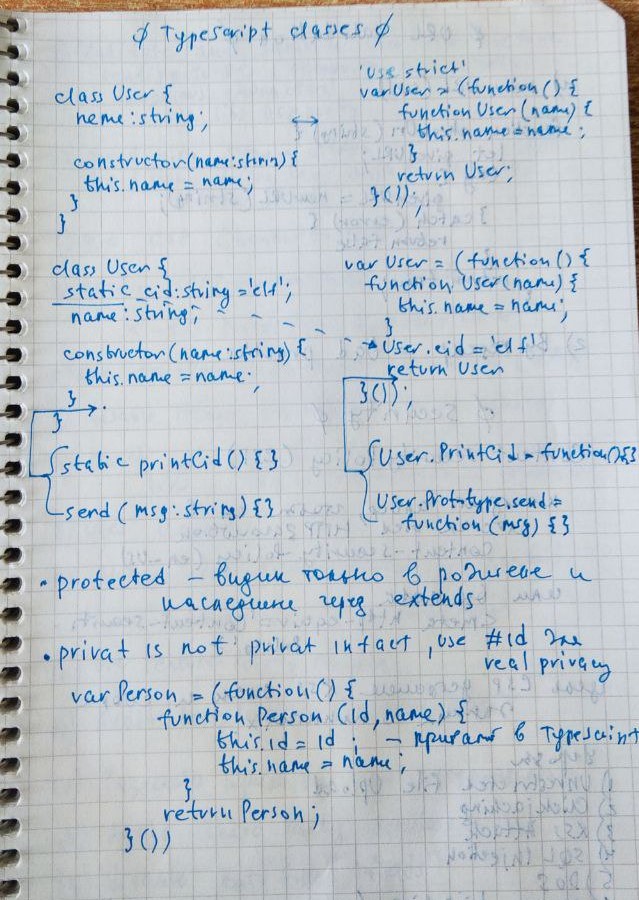 ∮ Typescript classes ∮
class User {
neme: string;
constructor(name: string) {
this.name = name;
}
}
'use strict'
var User = (function() {
function User(name) {
this.name = name;
}
return User;
}());
class User {
static cid: string = 'clf';
name: string;
constructor(name: string) {
this.name = name;
}
}
static printCid() {}
send (msg: string) {}
var User = (function() {
function User(name) {
this.name = name;
}
User.cid = 'clf'
return User
}());
User.PrintCid = function() {}
User.Prototype.send =
function (msg) {}
• protected – видим только в родителе и
наследнике через extends
• privat is not privat in fact, use #id для
real privacy
var Person = (function() {
function Person (id, name) {
this.id = id; – приват в Typescript
this.name = name;
}
return Person;
}())